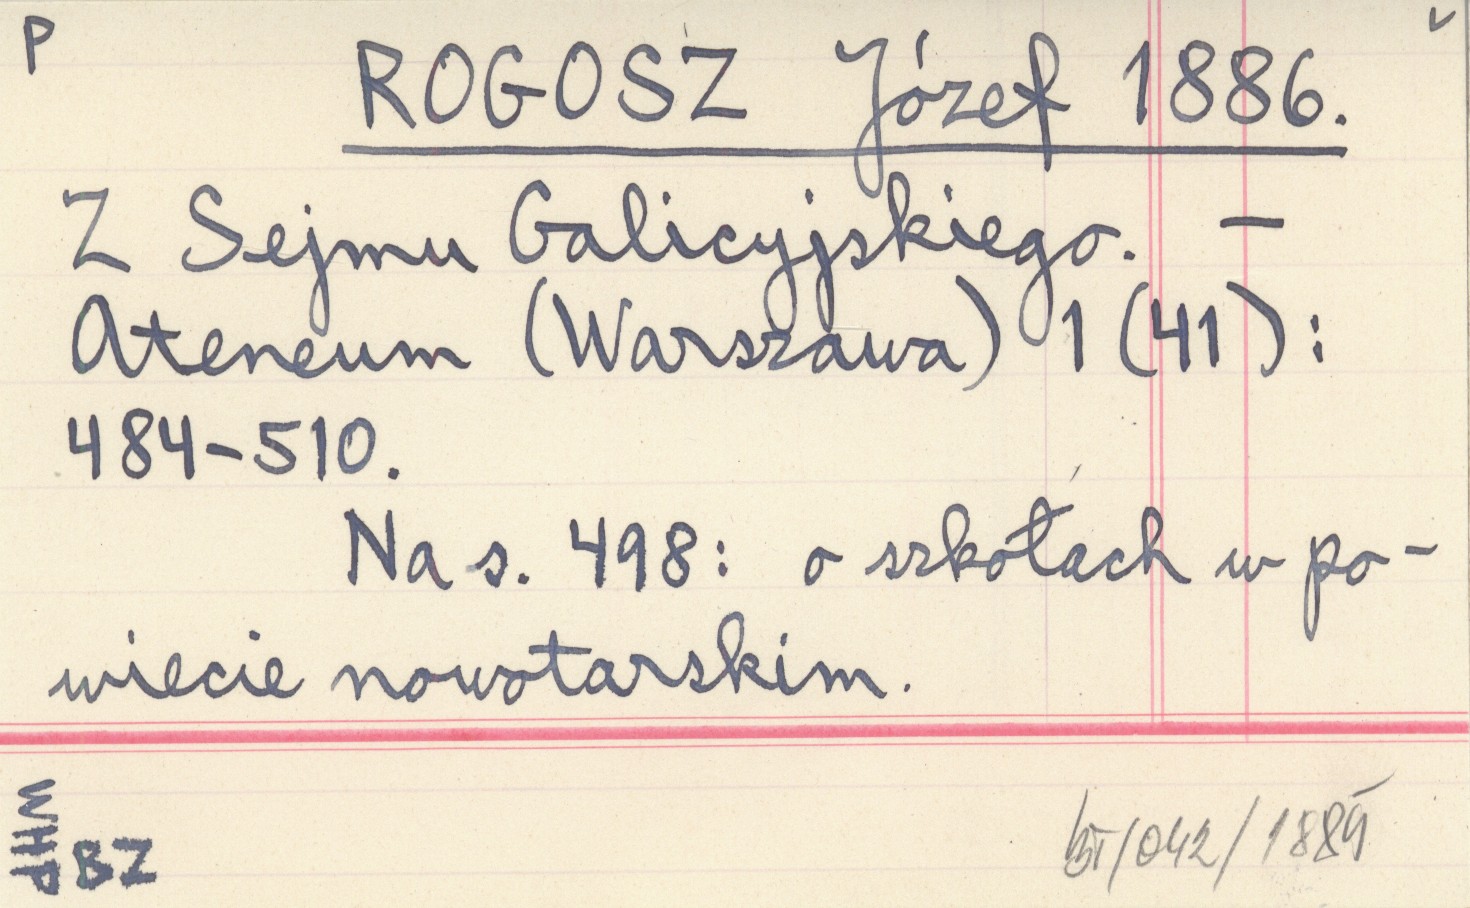 P
ROGOSZ Józef 1886.
Z Sejmu Galicyjskiego. —
Ateneum (Warszawa) 1 (41):
484-510.
Na s. 498: o szkołach w po-
wiecie nowotarskim.
WHP
BZ
/042/1889